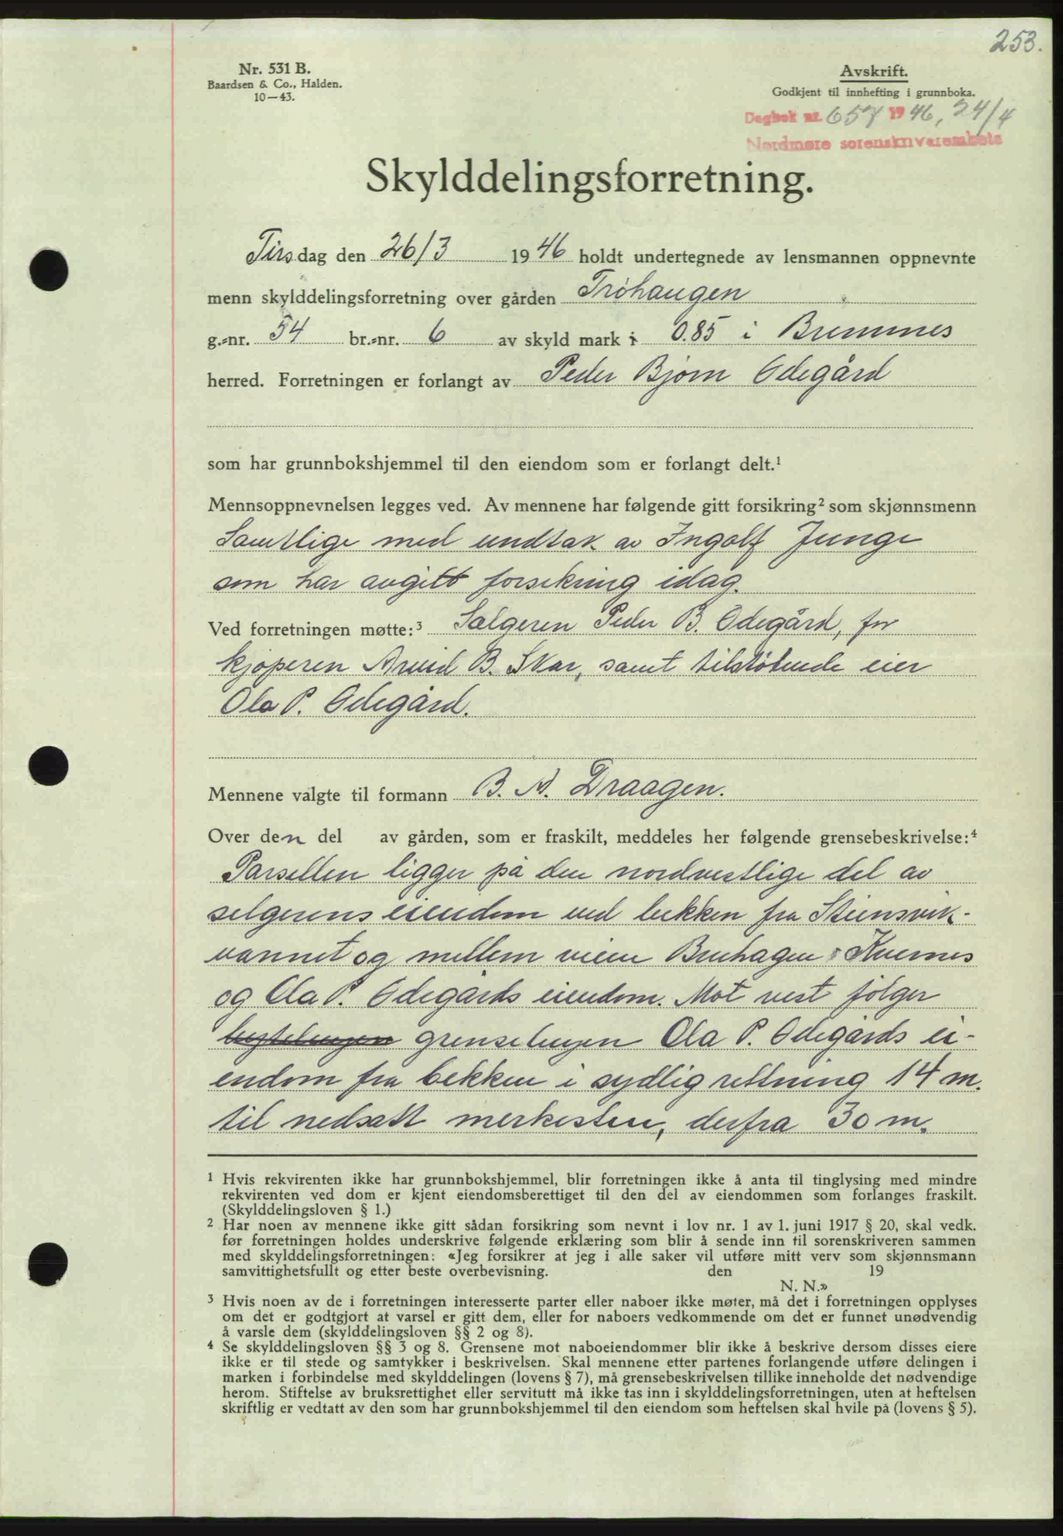 253.
Nr. 531 B.
Baardsen & Co., Halden.
10—43.
Avskrift.
Godkjent til innhefting i grunnboka.
Dagbok nr. 657 1946, 24/4
Nordmøre sorenskriverembete
Skylddelingsforretning.
Tirsdag den 26/3 1946 holdt undertegnede av lensmannen oppnevnte
menn skylddelingsforretning over gården Trøhaugen
g.-nr. 54 br.-nr. 6 av skyld mark 0.85 i Bremnes
herred. Forretningen er forlangt av Peder Bjørn Ødegård
som har grunnbokshjemmel til den eiendom som er forlangt delt.¹
Mennsoppnevnelsen legges ved. Av mennene har følgende gitt forsikring² som skjønnsmenn
Samtlige med undtak av Ingolf Junge
som har avgitt forsikring idag.
Ved forretningen møtte:³ Selgeren Peder B. Ødegård, for
kjøperen Arvid B. Skar, samt tilstøtende eier
Ola P. Ødegård.
Mennene valgte til formann B. A. Draagen.
Over den del av gården, som er fraskilt, meddeles her følgende grensebeskrivelse:⁴
Parsellen ligger på den nordvestlige del av
selgerens eiendom ved bekken fra Steinsvik-
vannet og mellem veien Bruhagen - Kvernes
og Ola P. Ødegårds eiendom. Mot vest følger
grenselinjen Ola P. Ødegårds ei-
endom fra bekken i sydlig rettning 14 m.
til nedsatt merkesten, derfra 30 m.
¹ Hvis rekvirenten ikke har grunnbokshjemmel, blir forretningen ikke å anta til tinglysing med mindre
rekvirenten ved dom er kjent eiendomsberettiget til den del av eiendommen som forlanges fraskilt.
(Skylddelingsloven § 1.)
² Har noen av mennene ikke gitt sådan forsikring som nevnt i lov nr. 1 av 1. juni 1917 § 20, skal vedk.
før forretningen holdes underskrive følgende erklæring som blir å sende inn til sorenskriveren sammen
med skylddelingsforretningen: «Jeg forsikrer at jeg i alle saker vil utføre mitt verv som skjønnsmann
samvittighetsfullt og etter beste overbevisning. den 19
N. N.»
³ Hvis noen av de i forretningen interesserte parter eller naboer ikke møter, må det i forretningen opplyses
om det er godtgjort at varsel er gitt dem, eller for naboers vedkommende om det er funnet unødvendig
å varsle dem (skylddelingsloven §§ 2 og 8).
⁴ Se skylddelingsloven §§ 3 og 8. Grensene mot naboeiendommer blir ikke å beskrive dersom disses eiere
ikke er til stede og samtykker i beskrivelsen. Skal mennene etter partenes forlangende utføre delingen i
marken i forbindelse med skylddelingen (lovens § 7), må grensebeskrivelsen tillike inneholde det nødvendige
herom. Stiftelse av bruksrettighet eller servitutt må ikke tas inn i skylddelingsforretningen, uten at heftelsen
skriftlig er vedtatt av den som har grunnbokshjemmel til den eiendom som heftelsen skal hvile på (lovens § 5).